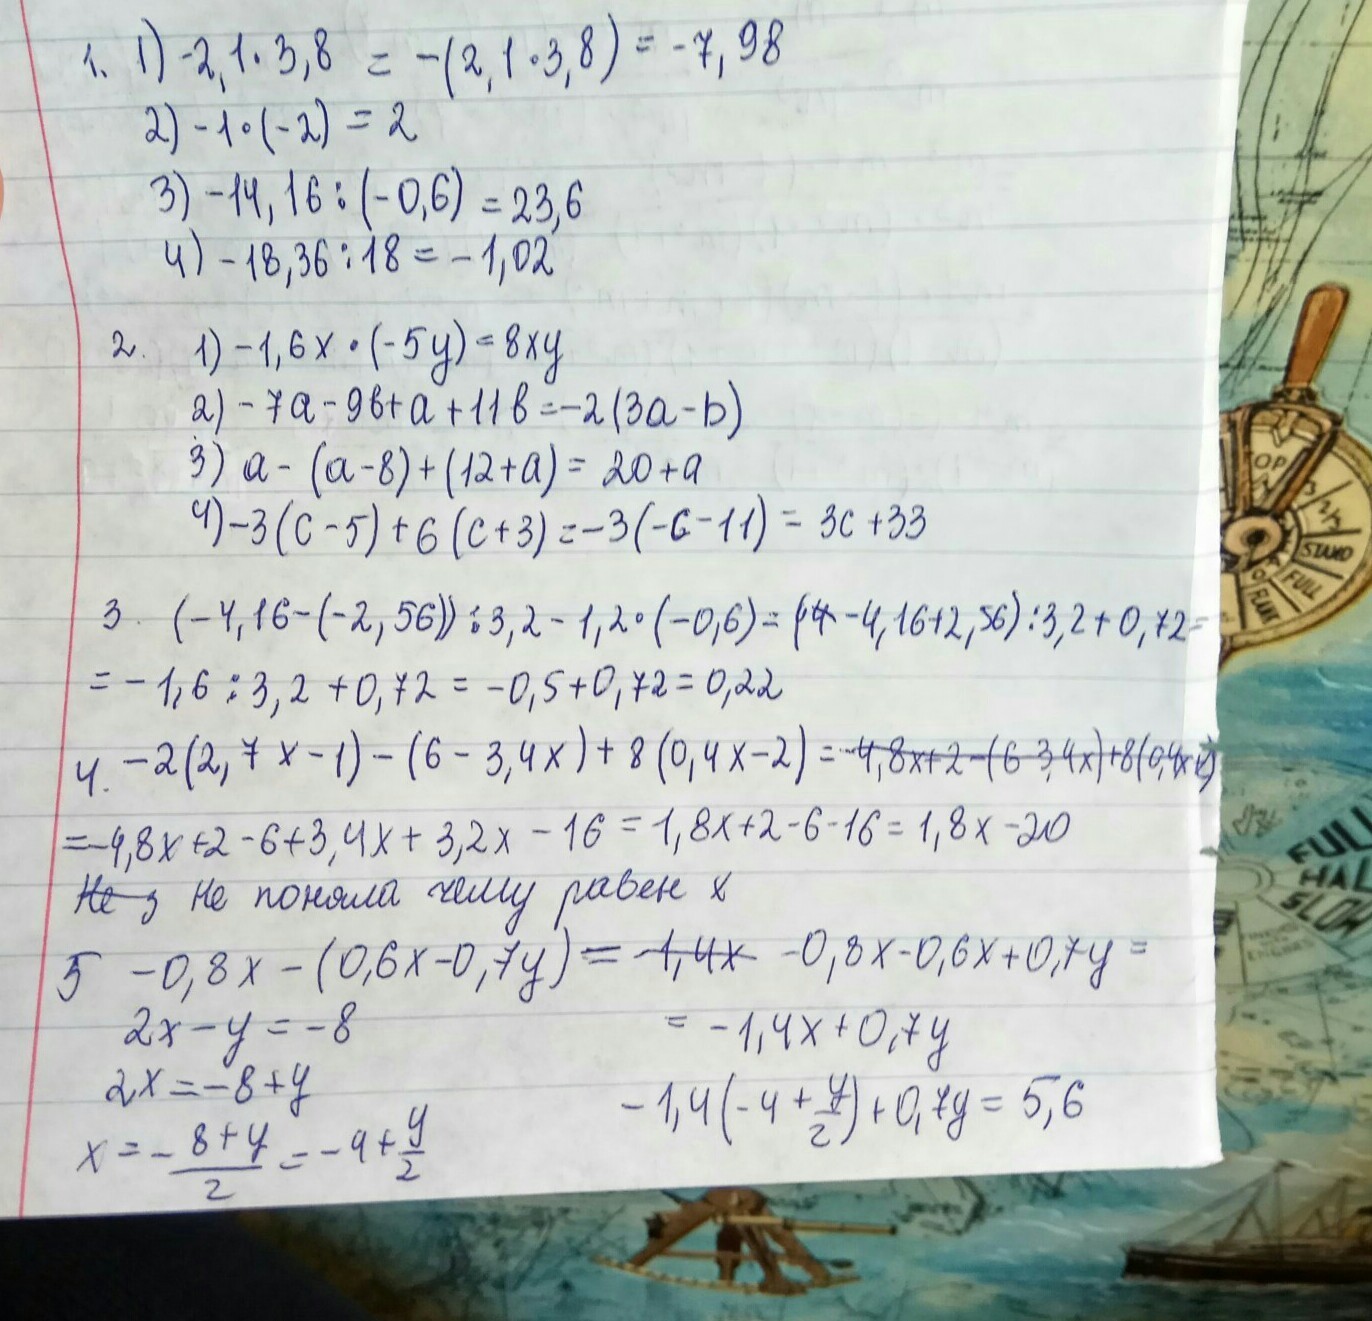 1. 1) -2,1·3,8 = -(2,1·3,8) = -7,98
2) -1·(-2) = 2
3) -14,16:(-0,6) = 23,6
4) -18,36:18 = -1,02
2. 1) -1,6x·(-5y) = 8xy
2) -7a-9b+a+11b = -2(3a-b)
3) a-(a-8)+(12+a) = 20+a
4) -3(c-5)+6(c+3) = -3(-c-11) = 3c+33
3. (-4,16-(-2,56)):3,2-1,2·(-0,6) = (-4,16+2,56):3,2+0,72=
= -1,6:3,2+0,72 = -0,5+0,72 = 0,22
4. -2(2,7x-1)-(6-3,4x)+8(0,4x-2) = -4,8x+2-(6-3,4x)+8(0,4x-2)
= -4,8x+2-6+3,4x+3,2x-16 = 1,8x+2-6-16 = 1,8x-20
Не з Не поняла чему равен x
5 -0,8x-(0,6x-0,7y) = 1,4x -0,8x-0,6x+0,7y =
2x-y = -8
= -1,4x+0,7y
2x = -8+y
-1,4(-4+y/2)+0,7y = 5,6
x = -8+y/2 = -4+y/2
OP
STAND
FULL
FULL
HAL
SLOW